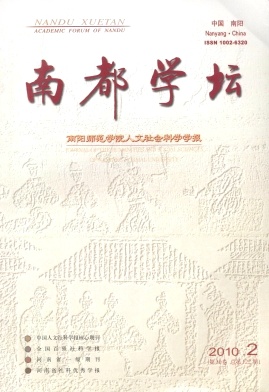 NANDU XUETAN
ACADEMIC FORUM OF NANDU
中国 南阳
Nanyang·China
ISSN 1002-6320
南都学坛
南阳师范学院人文社会科学学报
中国人文社科学报核心期刊
全国百强社科学报
河南省一级期刊
河南省社科优秀学报
2010.2